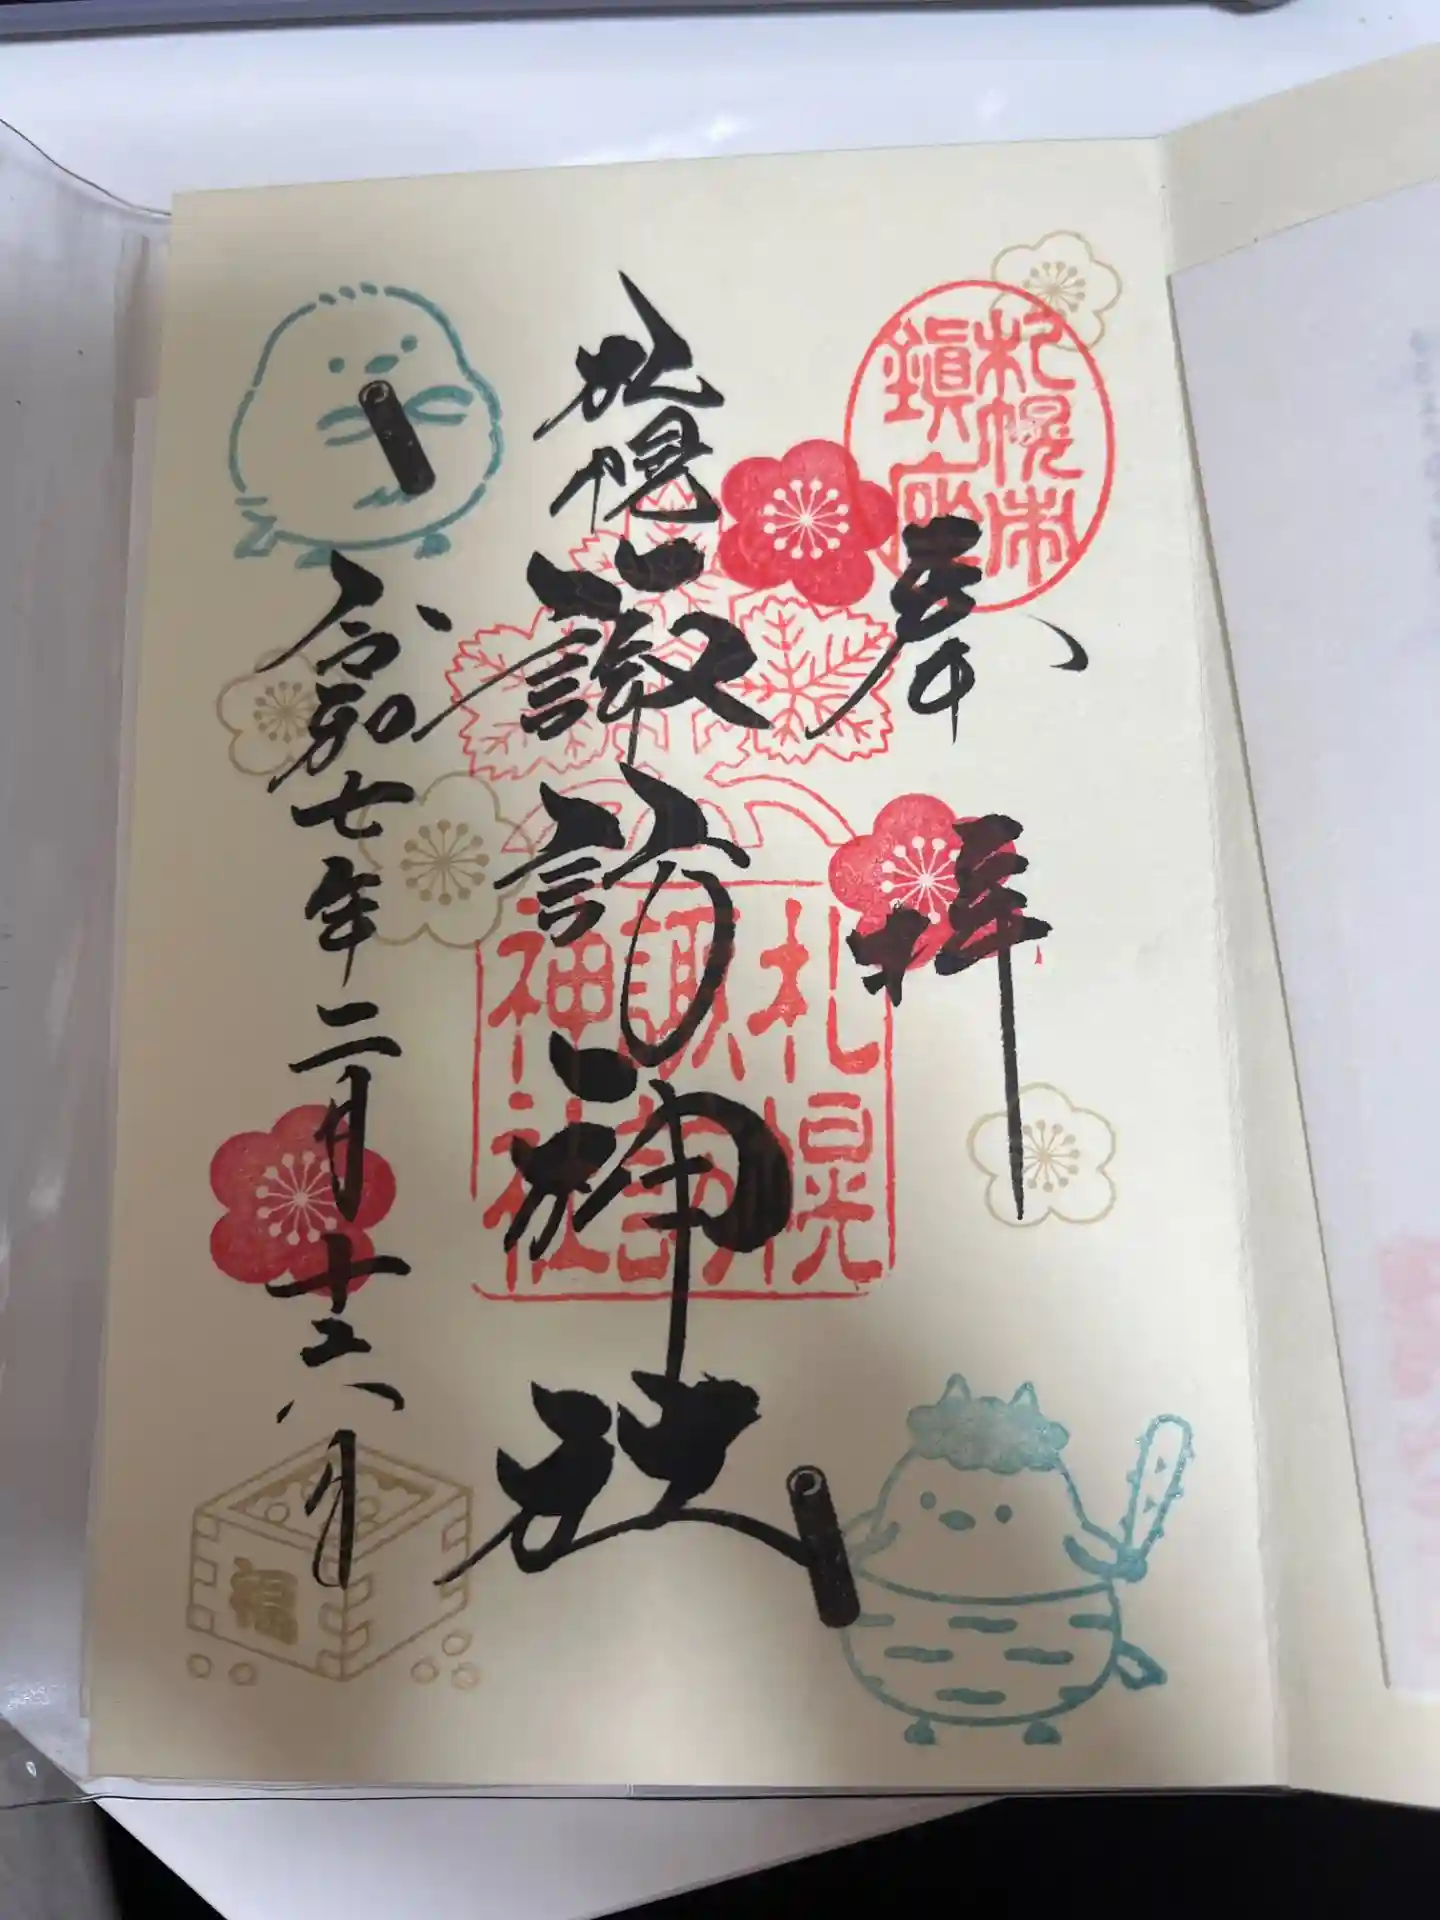 奉拝
札幌市
鎮座
札幌
諏訪神社
札幌
諏訪
神社
令和七年二月十六日
福